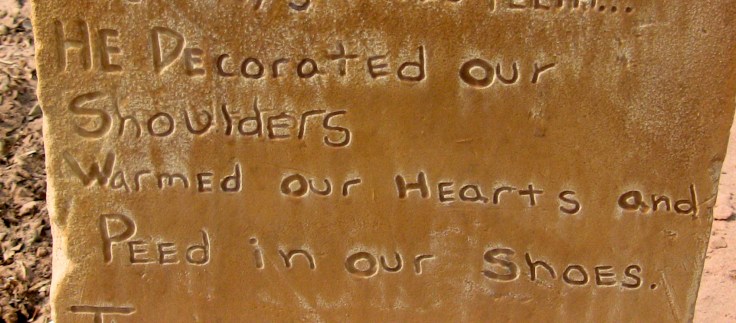 HE DEcoratEd our
ShouldERS
WarmEd our HEarts and
PEEd in our ShoES.